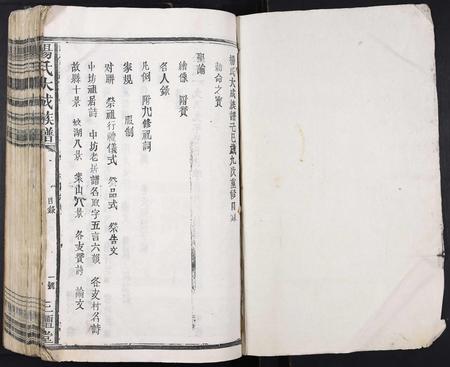 楊氏大成族譜七巳歲九次重修目錄
勅命之寶
聖諭
繪像 附贊
名人錄
凡例 附九修祖詞
家規 服制
对聯 祭祖行禮儀式 祭品式 祭告文
中坊祖居詩 中坊老居譜名取字五言六韻 各支村名詩
故縣十景 姣湖八景 案山八景 各支贊詩 論文
楊氏大成族譜
目錄
一號
三鱣堂